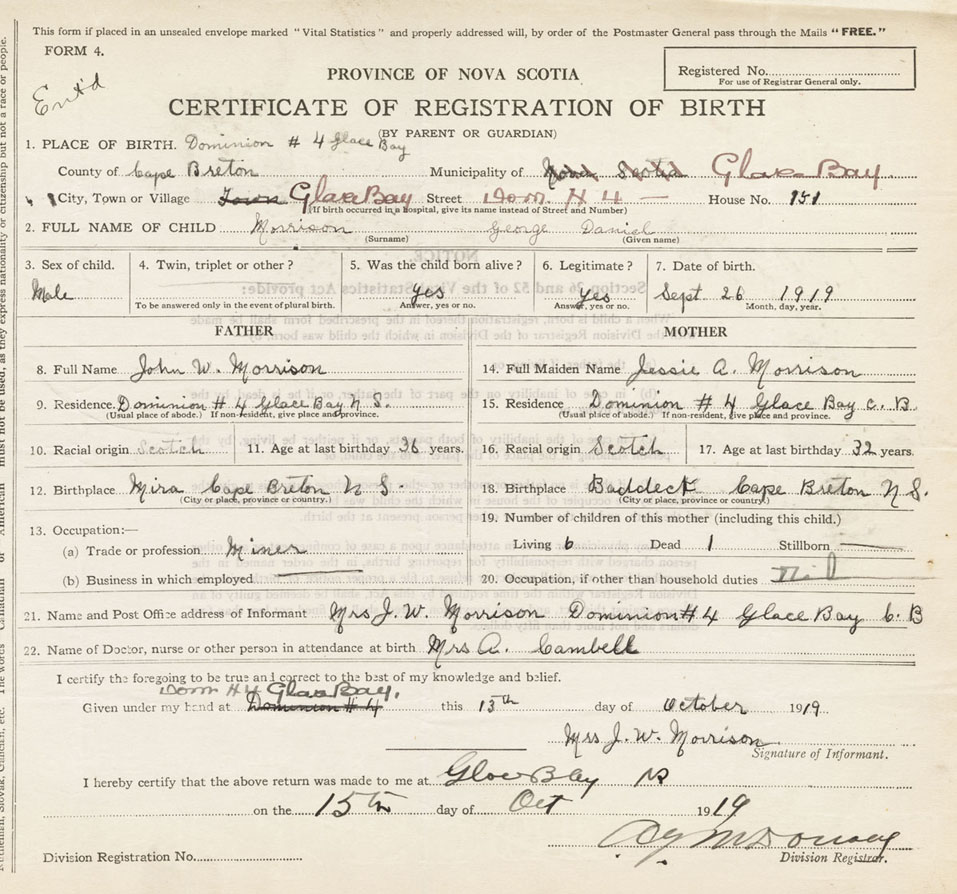 This form if placed in an unsealed envelope marked "Vital Statistics" and properly addressed will, by order of the Postmaster General pass through the Mails "FREE."
FORM 4.
Ent'd
PROVINCE OF NOVA SCOTIA
Registered No.
For use of Registrar General only.
CERTIFICATE OF REGISTRATION OF BIRTH
(BY PARENT OR GUARDIAN)
1. PLACE OF BIRTH. Dominion # 4 Glace Bay
County of Cape Breton Municipality of Nova Scotia Glace Bay
City, Town or Village Town Glace Bay Street Dom. # 4 House No. 151
(If birth occurred in a hospital, give its name instead of Street and Number)
2. FULL NAME OF CHILD Morrison George Daniel
(Surname) (Given name)
3. Sex of child. 4. Twin, triplet or other? 5. Was the child born alive? 6. Legitimate? 7. Date of birth.
Male yes yes Sept 26 1919
To be answered only in the event of plural birth. Answer, yes or no. Answer, yes or no. Month, day, year.
FATHER MOTHER
8. Full Name John W. Morrison 14. Full Maiden Name Jessie A. Morrison
9. Residence Dominion # 4 Glace Bay N. S. 15. Residence Dominion # 4 Glace Bay C. B.
(Usual place of abode.) If non-resident, give place and province. (Usual place of abode.) If non-resident, give place and province.
10. Racial origin Scotch 11. Age at last birthday 36 years. 16. Racial origin Scotch 17. Age at last birthday 32 years.
12. Birthplace Mira Cape Breton N S. 18. Birthplace Baddeck Cape Breton N S.
(City or place, province or country.) (City or place, province or country.)
19. Number of children of this mother (including this child.)
13. Occupation:—
(a) Trade or profession Miner Living 6 Dead 1 Stillborn
(b) Business in which employed 20. Occupation, if other than household duties
21. Name and Post Office address of Informant Mrs J. W. Morrison Dominion # 4 Glace Bay C. B
22. Name of Doctor, nurse or other person in attendance at birth Mrs A. Cambell
I certify the foregoing to be true and correct to the best of my knowledge and belief.
Dom # 4 Glace Bay.
Given under my hand at Dominion # 4 this 13th day of October 1919
Mrs J. W. Morrison
Signature of Informant.
I hereby certify that the above return was made to me at Glace Bay
on the 15th day of Oct 1919
Division Registration No. Division Registrar.